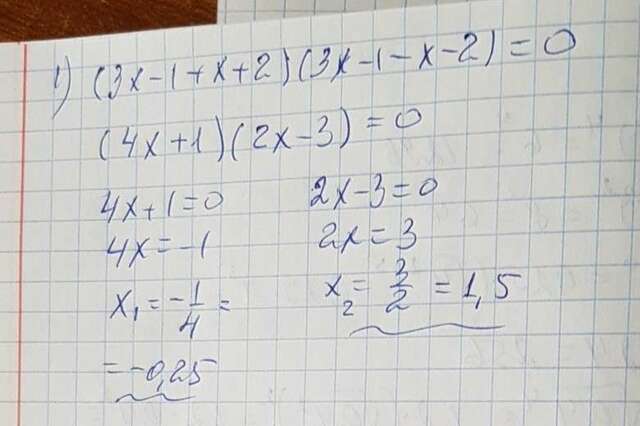 1) (3x-1+x+2)(3x-1-x-2)=0
(4x+1)(2x-3)=0
4x+1=0 2x-3=0
4x=-1 2x=3
x₁=-1/4= x₂=3/2=1,5
=-0,25